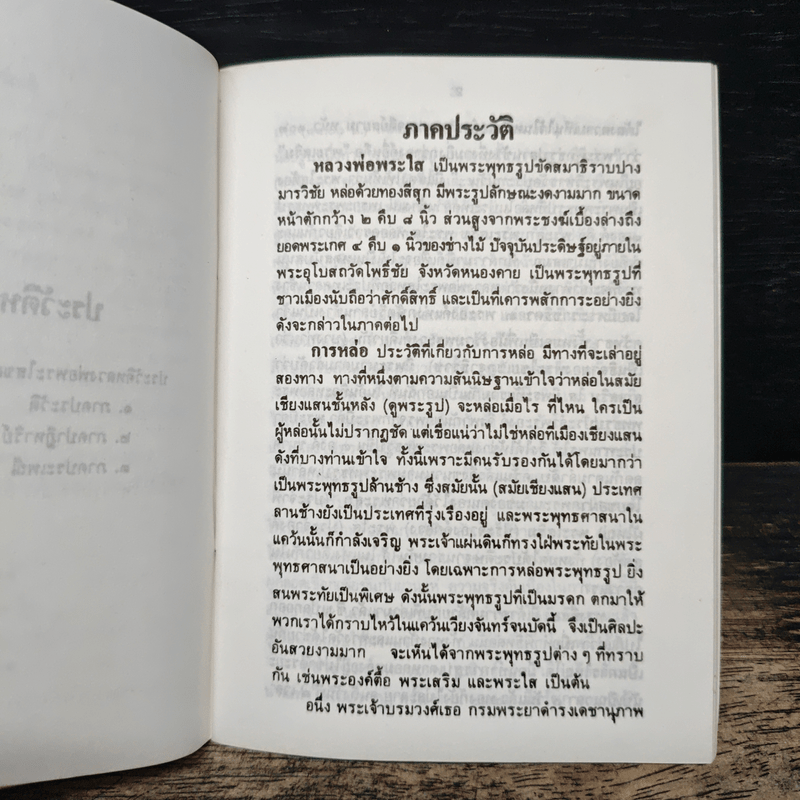 ภาคประวัติ
หลวงพ่อพระใส เป็นพระพุทธรูปขัดสมาธิราบปาง
มารวิชัย หล่อด้วยทองสีสุก มีพระรูปลักษณะงดงามมาก ขนาด
หน้าตักกว้าง ๒ คืบ ๘ นิ้ว ส่วนสูงจากพระชงฆ์เบื้องล่างถึง
ยอดพระเกศ ๔ คืบ ๑ นิ้วของช่างไม้ ปัจจุบันประดิษฐ์อยู่ภายใน
พระอุโบสถวัดโพธิ์ชัย จังหวัดหนองคาย เป็นพระพุทธรูปที่
ชาวเมืองนับถือว่าศักดิ์สิทธิ์ และเป็นที่เคารพสักการะอย่างยิ่ง
ดังจะกล่าวในภาคต่อไป
การหล่อ ประวัติที่เกี่ยวกับการหล่อ มีทางที่จะเล่าอยู่
สองทาง ทางที่หนึ่งตามความสันนิษฐานเข้าใจว่าหล่อในสมัย
เชียงแสนชั้นหลัง (ดูพระรูป) จะหล่อเมื่อไร ที่ไหน ใครเป็น
ผู้หล่อนั้นไม่ปรากฏชัด แต่เชื่อแน่ว่าไม่ใช่หล่อที่เมืองเชียงแสน
ดังที่บางท่านเข้าใจ ทั้งนี้เพราะมีคนรับรองกันได้โดยมากว่า
เป็นพระพุทธรูปล้านช้าง ซึ่งสมัยนั้น (สมัยเชียงแสน) ประเทศ
ลานช้างยังเป็นประเทศที่รุ่งเรืองอยู่ และพระพุทธศาสนาใน
แคว้นนั้นก็กำลังเจริญ พระเจ้าแผ่นดินก็ทรงใฝ่พระทัยในพระ
พุทธศาสนาเป็นอย่างยิ่ง โดยเฉพาะการหล่อพระพุทธรูป ยิ่ง
สนพระทัยเป็นพิเศษ ดังนั้นพระพุทธรูปที่เป็นมรดก ตกมาให้
พวกเราได้กราบไหว้ในแคว้นเวียงจันทร์จนบัดนี้ จึงเป็นศิลปะ
อันสวยงามมาก จะเห็นได้จากพระพุทธรูปต่าง ๆ ที่ทราบ
กัน เช่นพระองค์ตื้อ พระเสริม และพระใส เป็นต้น
อนึ่ง พระเจ้าบรมวงศ์เธอ กรมพระยาดำรงเดชานุภาพ